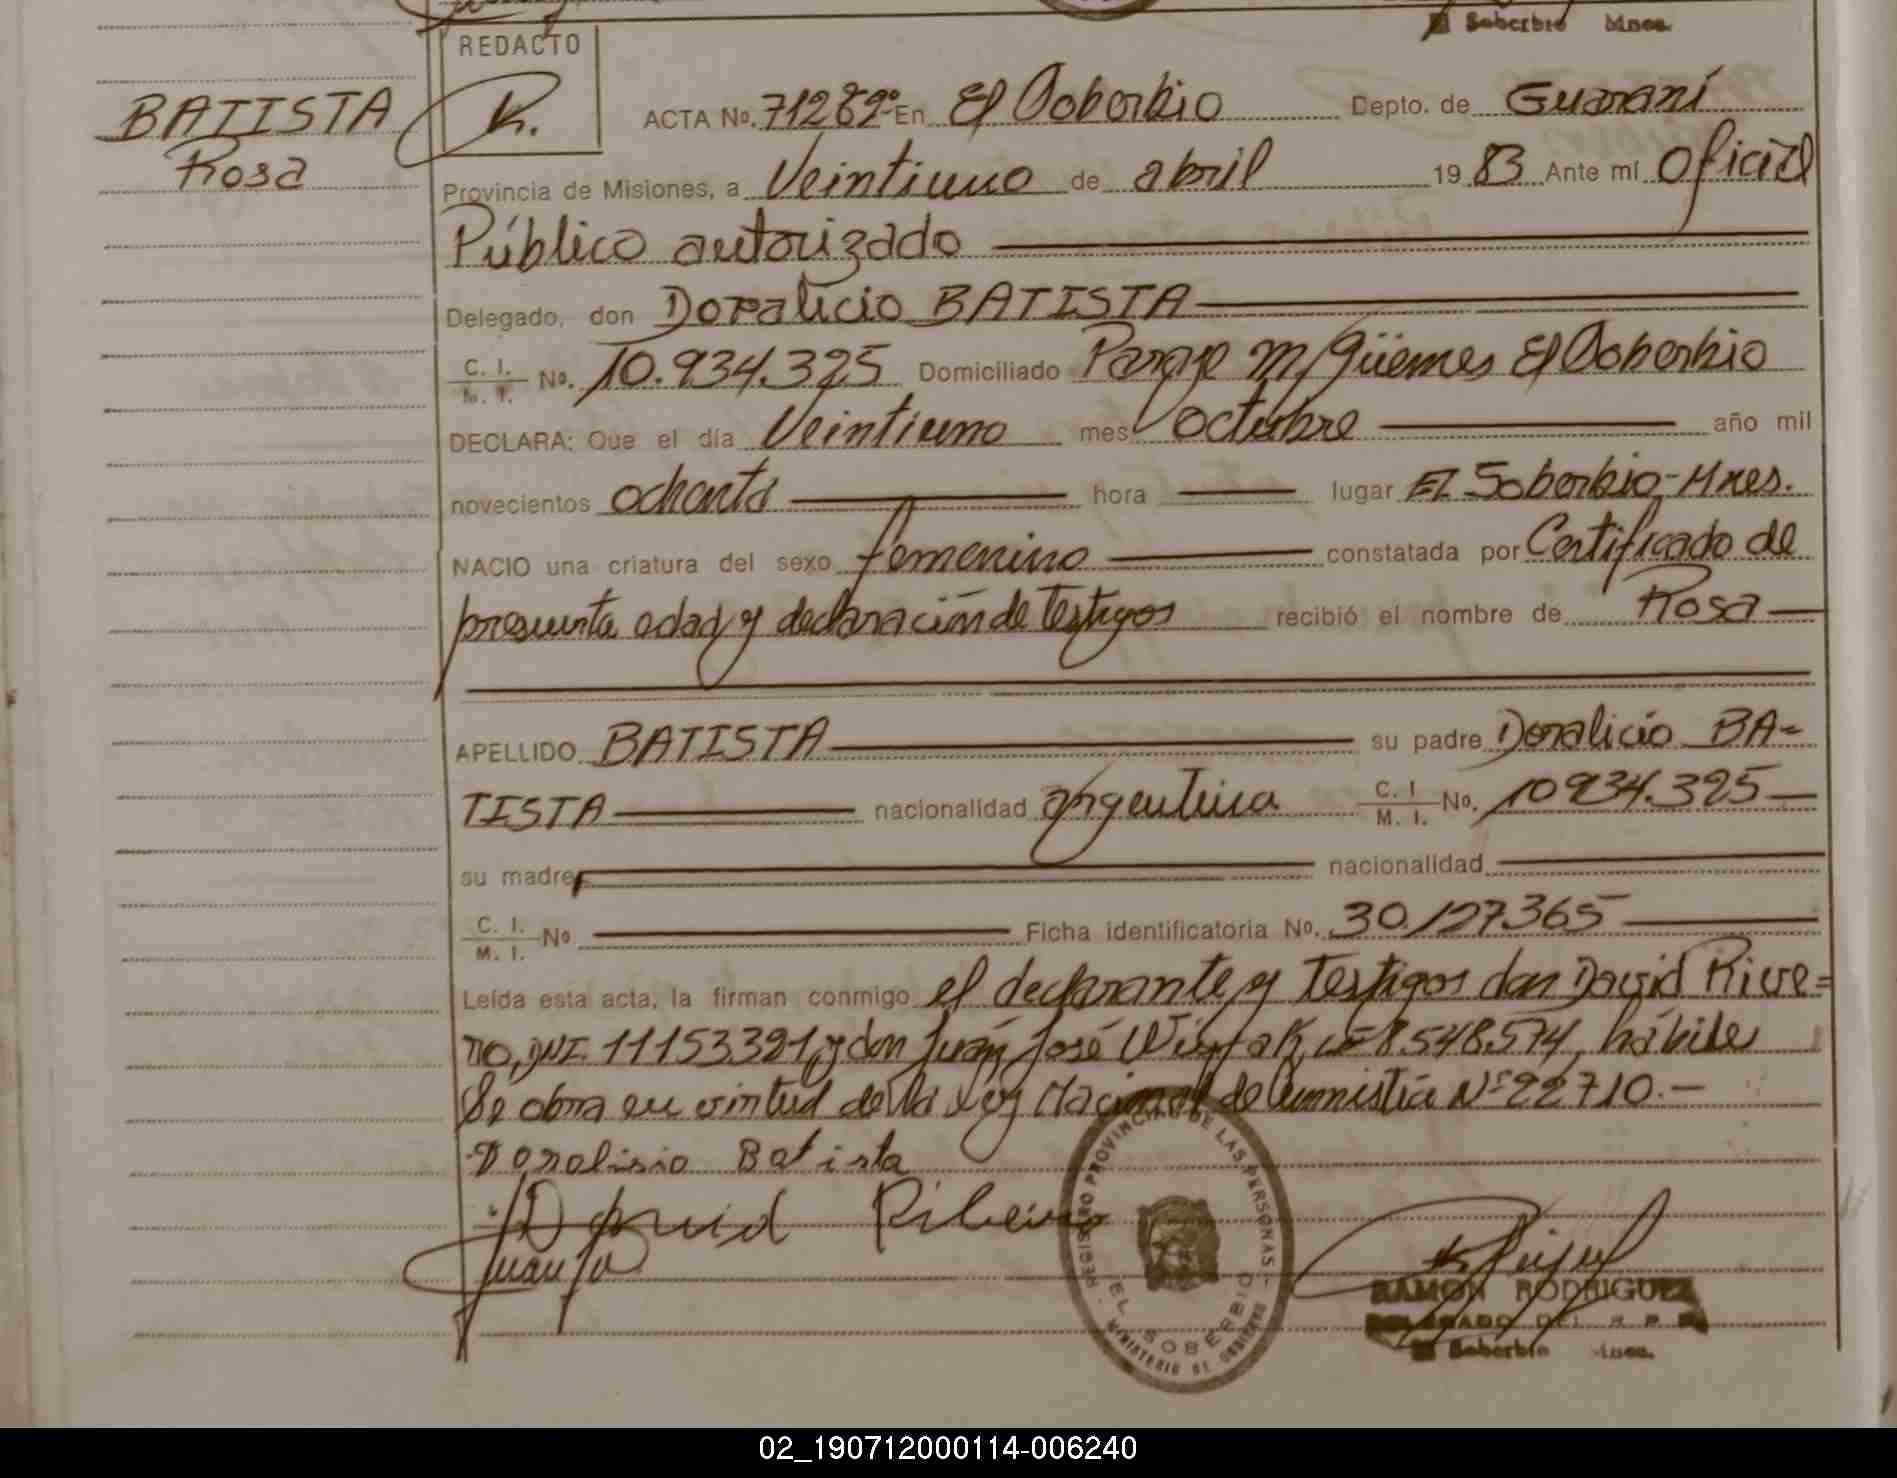 El Soberbio Mnes.
REDACTO
BATISTA
Rosa
ACTA No. 71289º En El Soberbio Depto. de Guaraní
Provincia de Misiones, a Veintiuno de abril 1983 Ante mí Oficial
Público autorizado
Delegado, don Doralicio BATISTA
C. I. M. I. No. 10.934.325 Domiciliado Paraje M/Güemes El Soberbio
DECLARA: Que el día Veintiuno mes Octubre año mil
novecientos ochenta hora lugar El Soberbio-Mnes.
NACIO una criatura del sexo femenino constatada por Certificado de
presunta edad y declaración de testigos recibió el nombre de Rosa
APELLIDO BATISTA su padre Doralicio BA-
TISTA nacionalidad argentina C. I. M. I. No. 10934.325
su madre nacionalidad
C. I. M. I. No Ficha identificatoria No. 30.127.365
Leída esta acta, la firman conmigo el declarante y testigos don David Rive=
ro, DNI. 11153.321, y don Juan José 8.548.574, hábiles
Se obra en virtud de la Ley Nacional de Amnistía Nº 22710.-
Doralisio Batista
David Ribeiro
Juan Jo
REGISTRO PROVINCIAL DE LAS PERSONAS
EL SOBERBIO
MINISTERIO DE GOBIERNO
RAMON RODRIGUEZ
DELEGADO DEL R P P
El Soberbio Mnes.
02_190712000114-006240